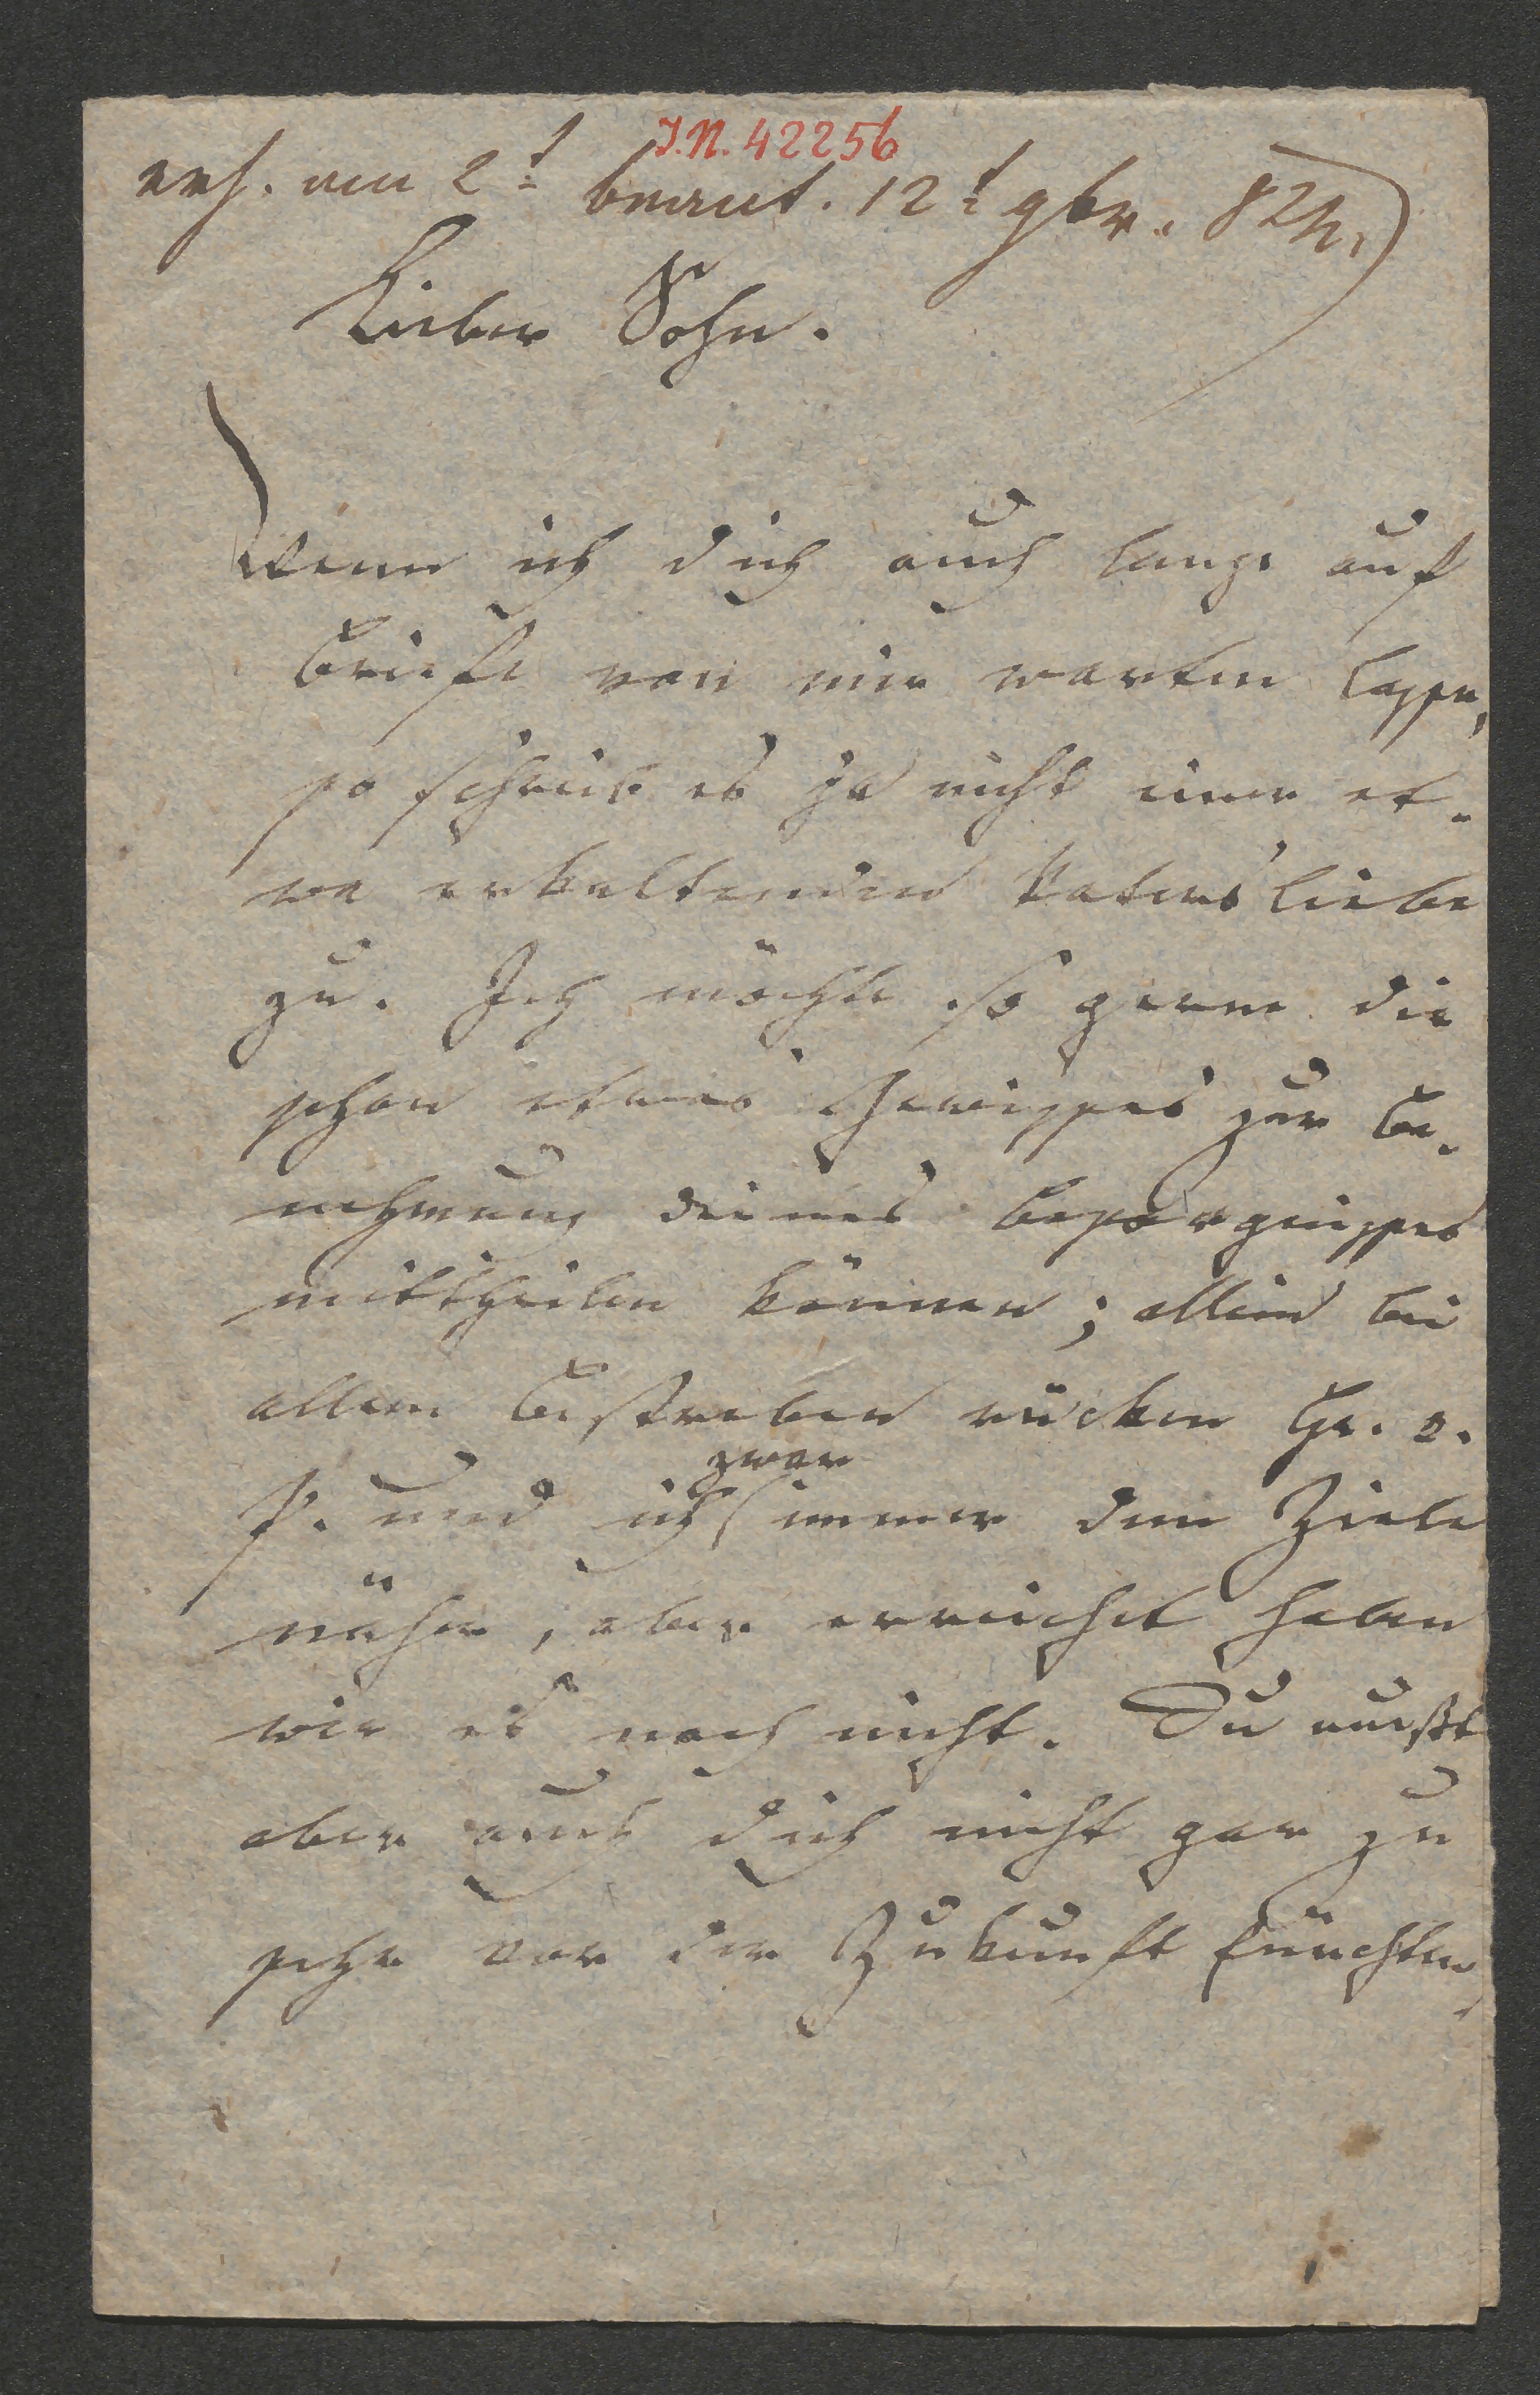 I.N. 42256
erh. am 2t beant. 12t 9br. 824
Lieber Sohn.
Wenn ich dich auch lange auf
Briefe von mir warten lasse,
so schreib es ja nicht einer et-
wa erkaltenden Vatersliebe
zu. Ich möchte so gerne dir
schon etwas Gewisses zur Be-
nehmung deines Besorgnisses
mittheilen können; allein bei
allem Bestreben rücken Hr. v.
P. und ich zwar immer dem Ziele
näher, aber erreichet haben
wir es noch nicht. Du mußt
aber auch dich nicht gar zu
sehr vor der Zukunft fürchten,